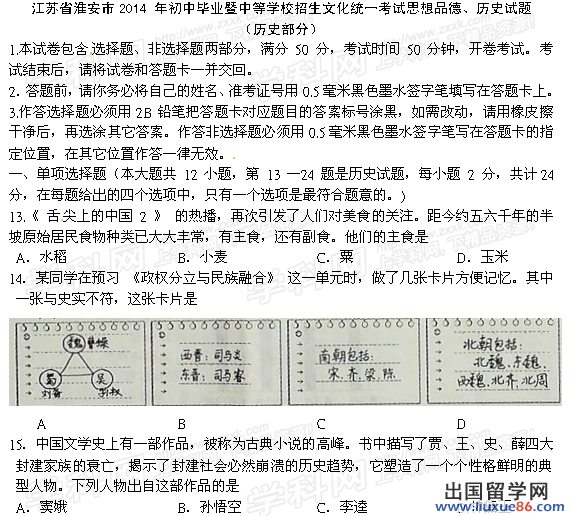 江苏省淮安市 2014 年初中毕业暨中等学校招生文化统一考试思想品德、历史试题
(历史部分)
1.本试卷包含选择题、非选择题两部分，满分 50 分，考试时间 50 分钟，开卷考试。考
试结束后，请将试卷和答题卡一并交回。
2. 答题前，请你务必将自己的姓名、准考证号用 0.5 毫米黑色墨水签字笔填写在答题卡上。
3.作答选择题必须用 2B 铅笔把答题卡对应题目的答案标号涂黑，如需改动，请用橡皮擦
干净后，再选涂其它答案。作答非选择题必须用 0.5 毫米黑色墨水签字笔写在答题卡的指
定位置，在其它位置作答一律无效。
一、单项选择题（本大题共 12 小题，第 13 —24 题是历史试题，每小题 2 分，共计24
分，在每题给出的四个选项中，只有一个选项是最符合题意的。)
13.《 舌尖上的中国 2 》 的热播，再次引发了人们对美食的关注。距今约五六千年的半
坡原始居民食物种类已大大丰常，有主食，还有副食。他们的主食是
A．水稻 B．小麦 C．粟 D．玉米
14．某同学在预习 《政权分立与民族融合》 这一单元时，做了几张卡片方便记忆。其中
一张与史实不符，这张卡片是
魏 曹操
蜀 吴
刘备 孙权
西晋：司马炎
东晋：司马睿
南朝包括：
宋.齐.梁.陈
北朝包括：
北魏、东魏、
西魏、北齐、北周
A B C D
15．中国文学史上有一部作品，被称为古典小说的高峰。书中描写了贾、王、史、薛四大
封建家族的衰亡，揭示了封建社会必然崩溃的历史趋势，它塑造了一个个性格鲜明的典
型人物。下列人物出自这部作品的是
A．窦娥 B．孙悟空 C．李逵
出国留学网
www.liuxue86.com